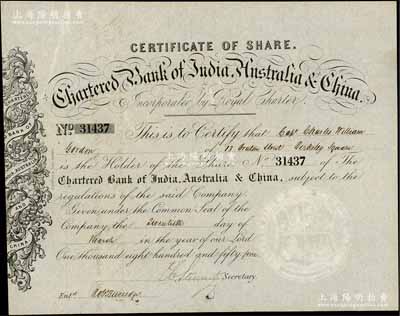 上海阳明拍卖
CERTIFICATE OF SHARE.
Chartered Bank of India, Australia & China.
Incorporated by Royal Charter.
No 31437 This is to Certify that Capt Charles William
Gordon of 11 Street Berkeley Square
is the Holder of the Share No 31437 of The
Chartered Bank of India, Australia & China, subject to the
regulations of the said Company.
Given under the Common Seal of the
Company, the Twentieth day of
March in the year of our Lord
One thousand eight hundred and fifty
Secretary.
Entd
CHARTERED
BANK OF
INDIA
AUSTRALIA
AND
CHINA
上海阳明拍卖